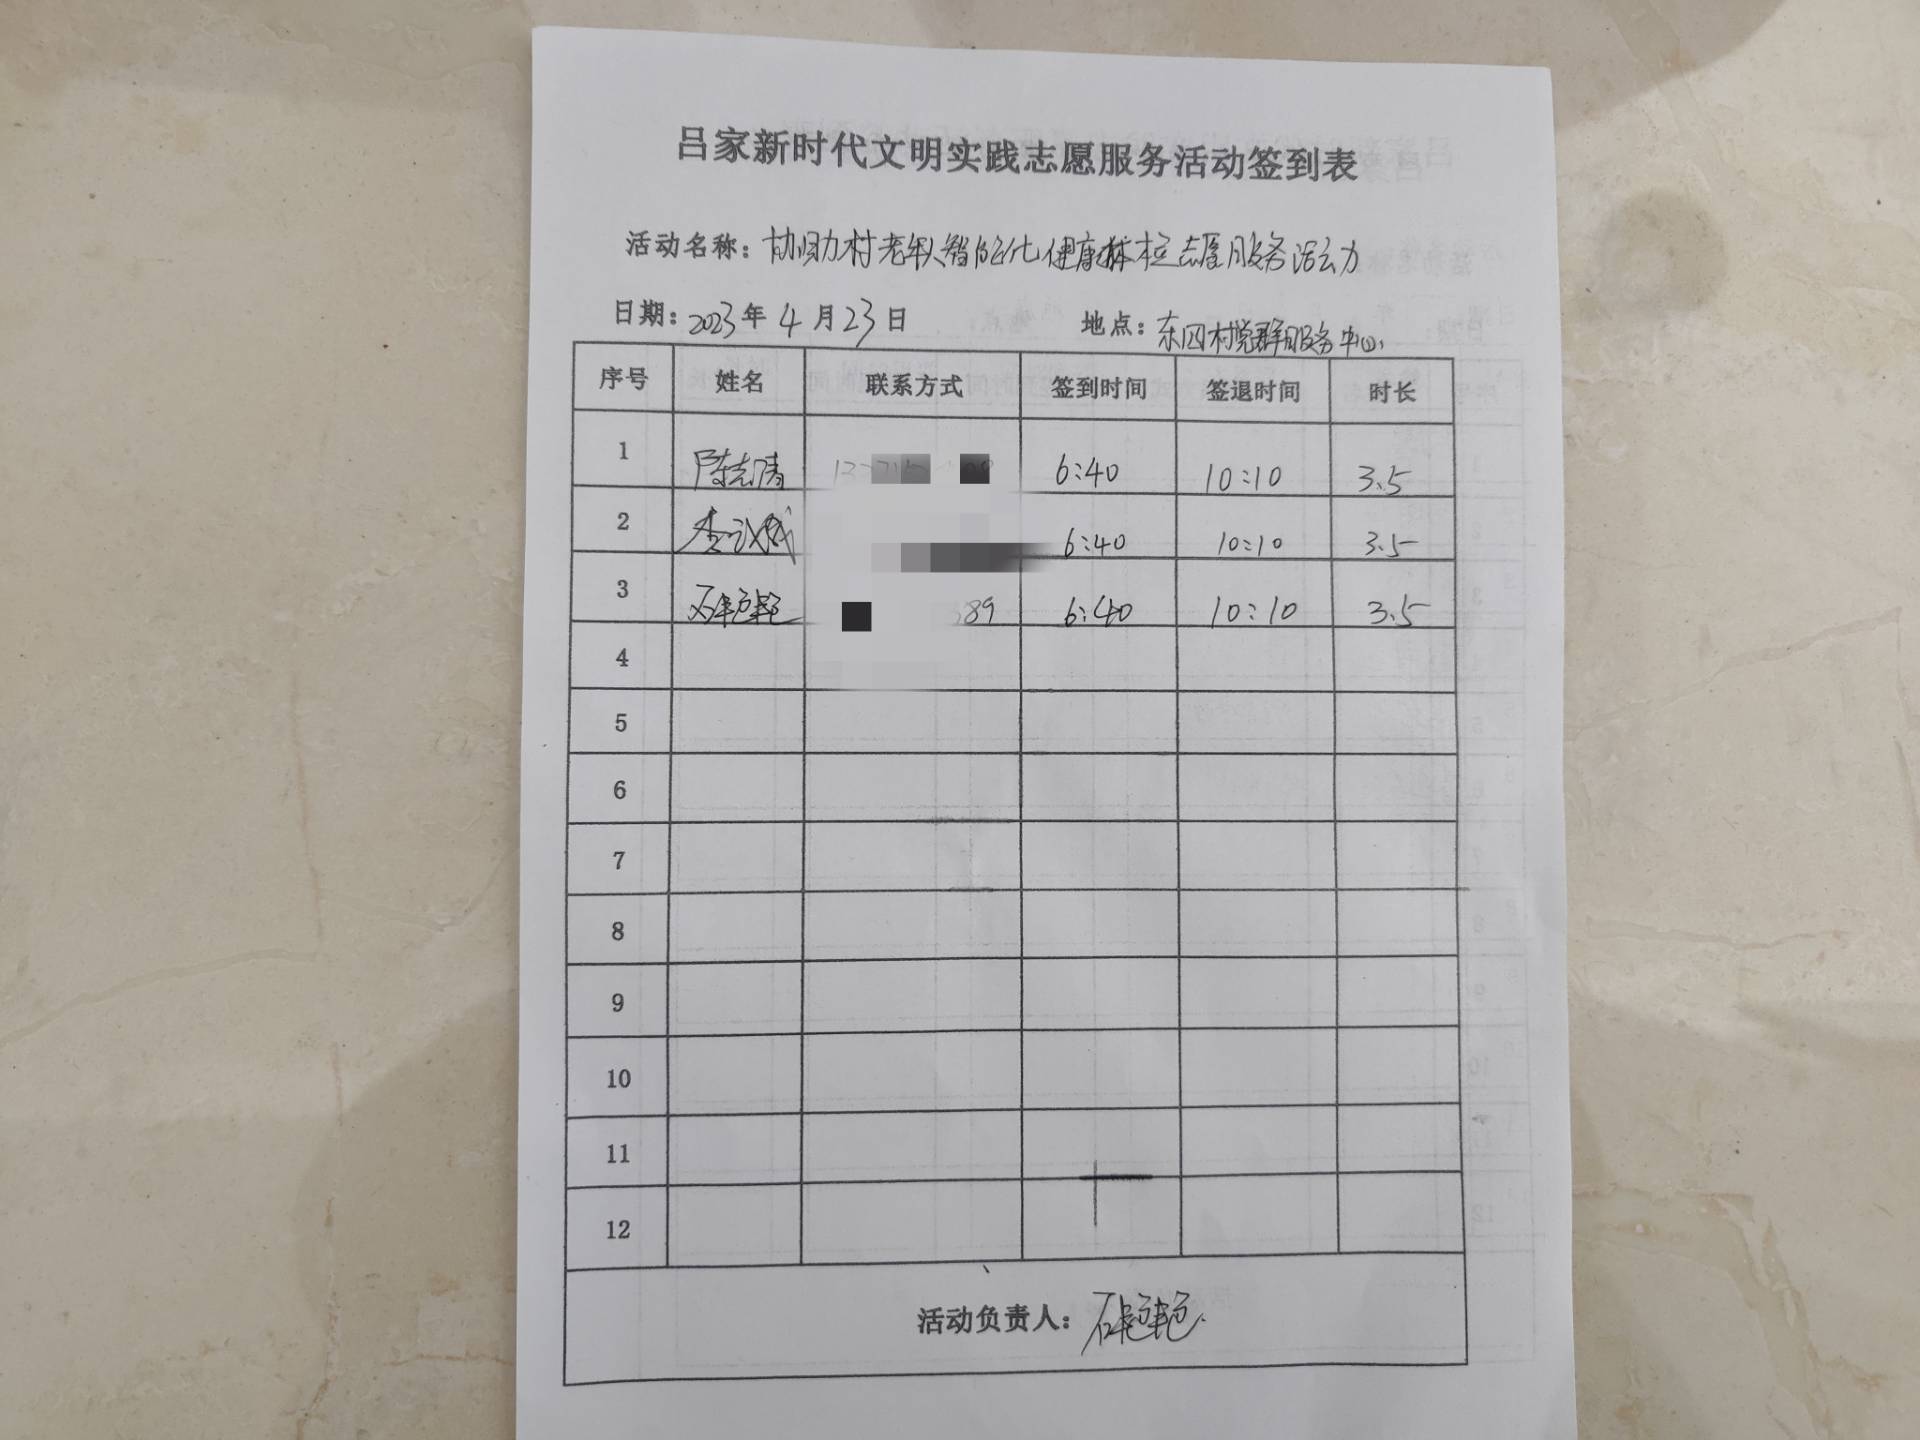 吕家新时代文明实践志愿服务活动签到表
活动名称：协助村老年人智能化健康体检志愿服务活动
日期：2023年4月23日 地点：东四村党群服务中心
序号 姓名 联系方式 签到时间 签退时间 时长
1 陈志清 6:40 10:10 3.5
2 李 6:40 10:10 3.5
3 石艳艳 89 6:40 10:10 3.5
4
5
6
7
8
9
10
11
12
活动负责人：石艳艳